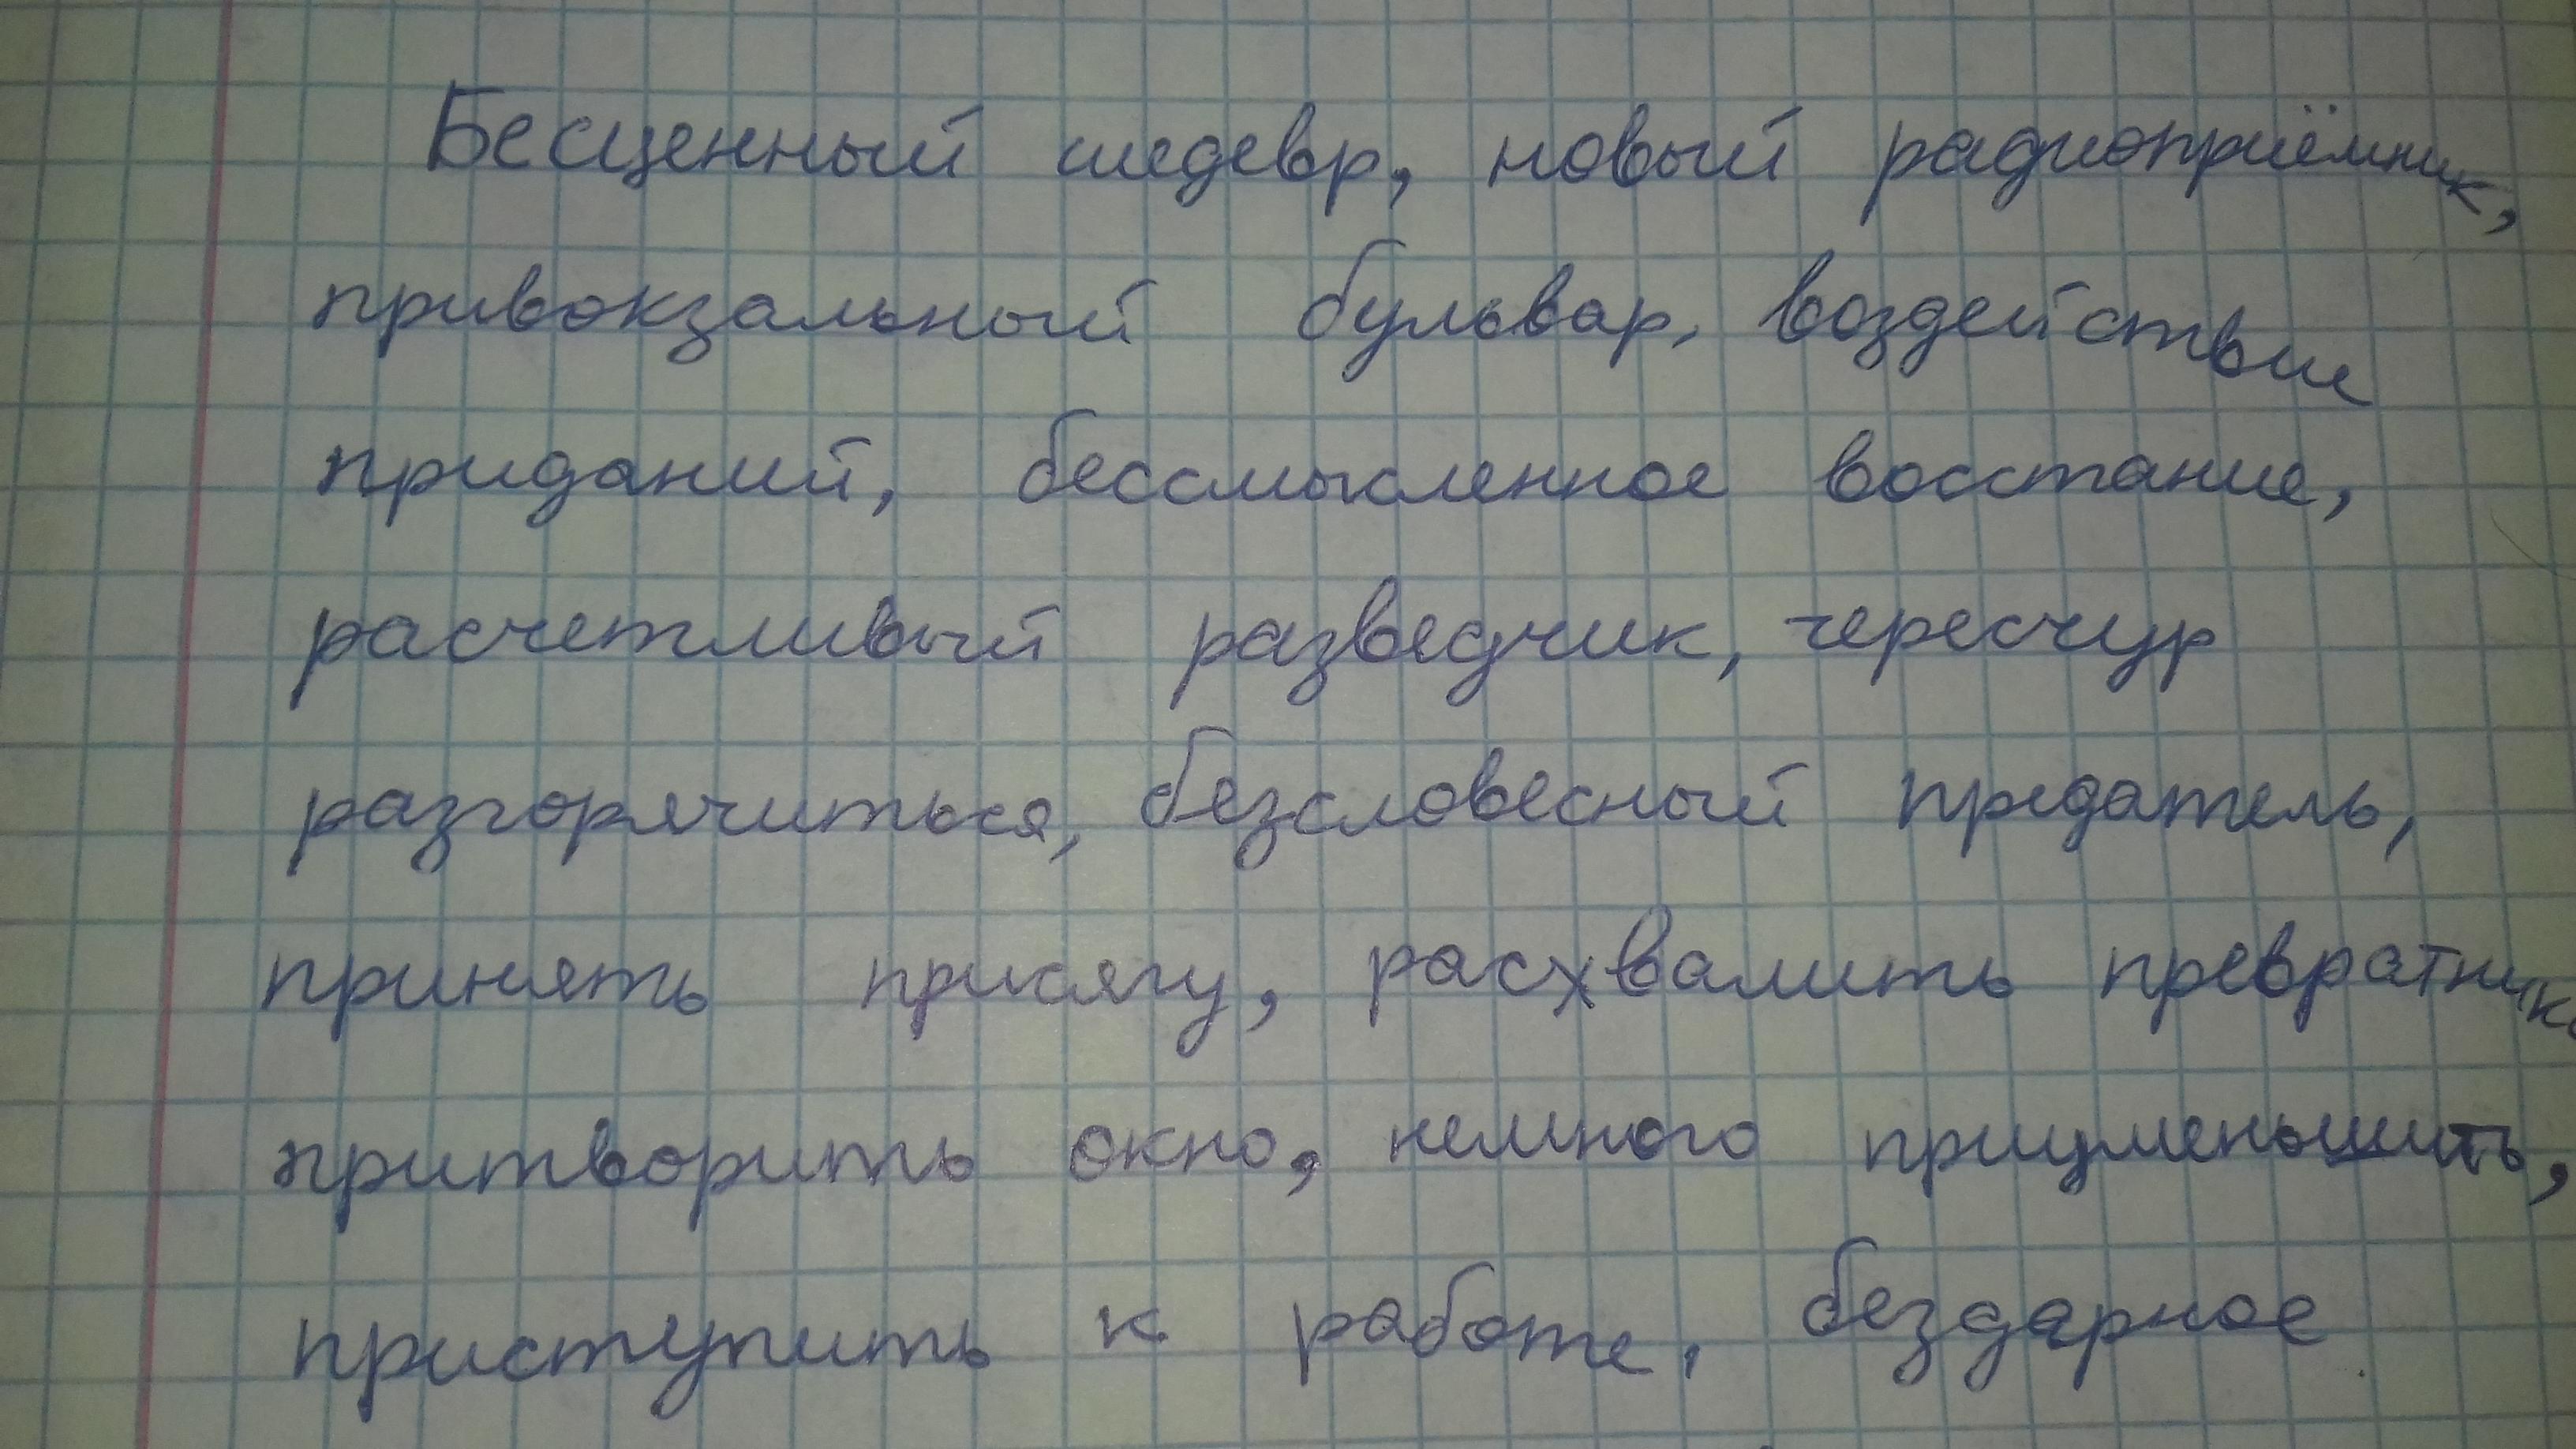 Бесценный шедевр, новый радиоприёмник,
привокзальный бульвар, воздействие
приданий, бессмысленное восстание,
расчетливый разведчик, чересчур
разгорячиться, безсловесный предатель,
принять присягу, расхвалить превратника
притворить окно, немного приуменьшить,
приступить к работе, бездарное